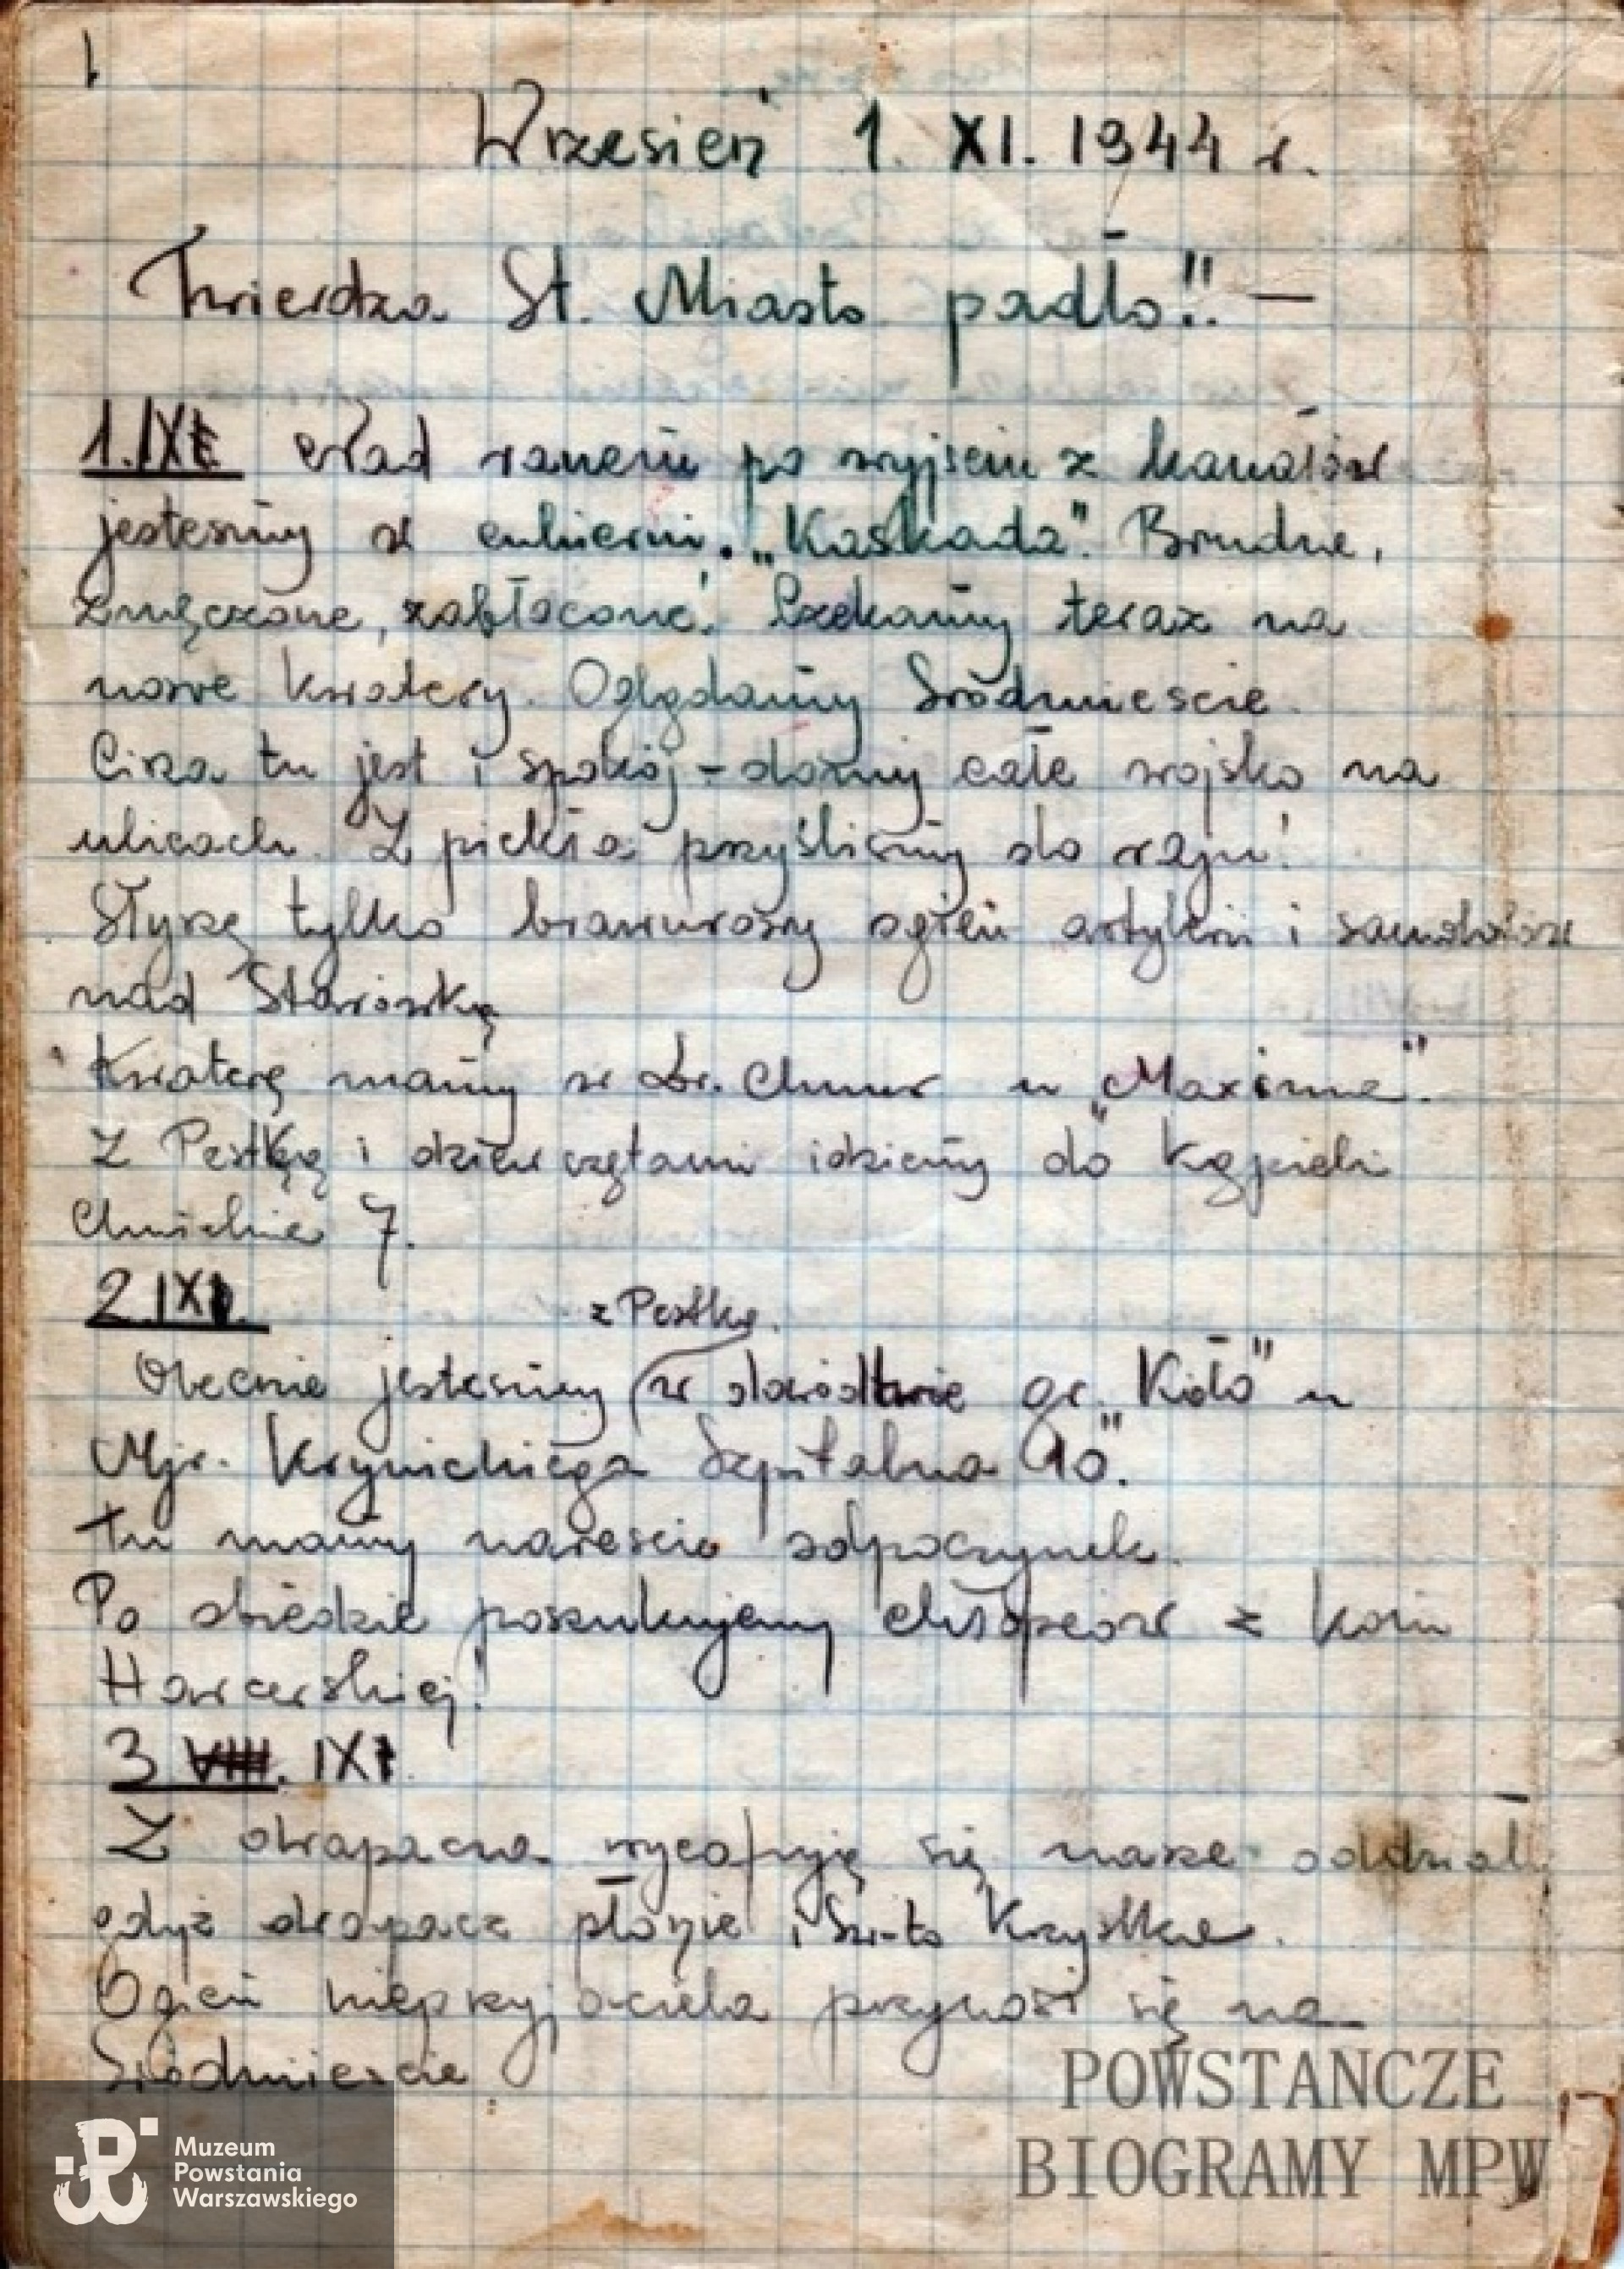 1
Wrzesień 1. XI. 1944 r.
Twierdza St. Miasto padło!! —
1. IX Nad ranem po wyjściu z kanałów
jesteśmy w cukierni. „Kaskada". Brudne,
zmęczone, zabłocone! Czekamy teraz na
nowe kwatery. Oglądamy Śródmieście.
Cisza tu jest i spokój – dożny całe wojsko na
ulicach. Z piekła przyśliśmy do raju!
Słyszę tylko brawurowy ogień artylerii i samolotów
nad Starówką
Kwaterę mamy w Dr. Chmur u „Maxime".
Z Pestką i dziewczętami idziemy do kąpieli
Chmielna 7.
2. IX.
z Pestką.
Obecnie jesteśmy w dowództwie gr. „Koło" u
Mjr. Krynickiego Szpitalna 10".
Tu mamy nareście odpoczynek.
Po obiedzie poszukujemy chłopców z Kom
Harcerskiej!
3 VIII. IX
Z drapacza wycofują się nasze oddziały
gdyż drapacz płonie i Św-to Krzyskie.
Ogień nieprzyjaciela przynosi się na
Śródmieście
POWSTAŃCZE
BIOGRAMY MPW
Muzeum
Powstania
Warszawskiego